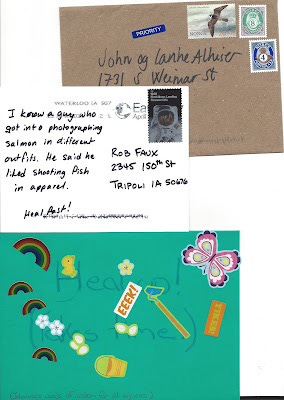 PRIORITY
John og Lanhe Alhiser
1731 S Weimar St
WATERLOO IA 507
I know a guy who
got into photographing
salmon in different
outfits. He said he
liked shooting fish
in apparel.
Heal fast!
ROB FAUX
2345 150th ST
TRIPOLI IA 50676
Heal up!
(takes time)
EEEK!